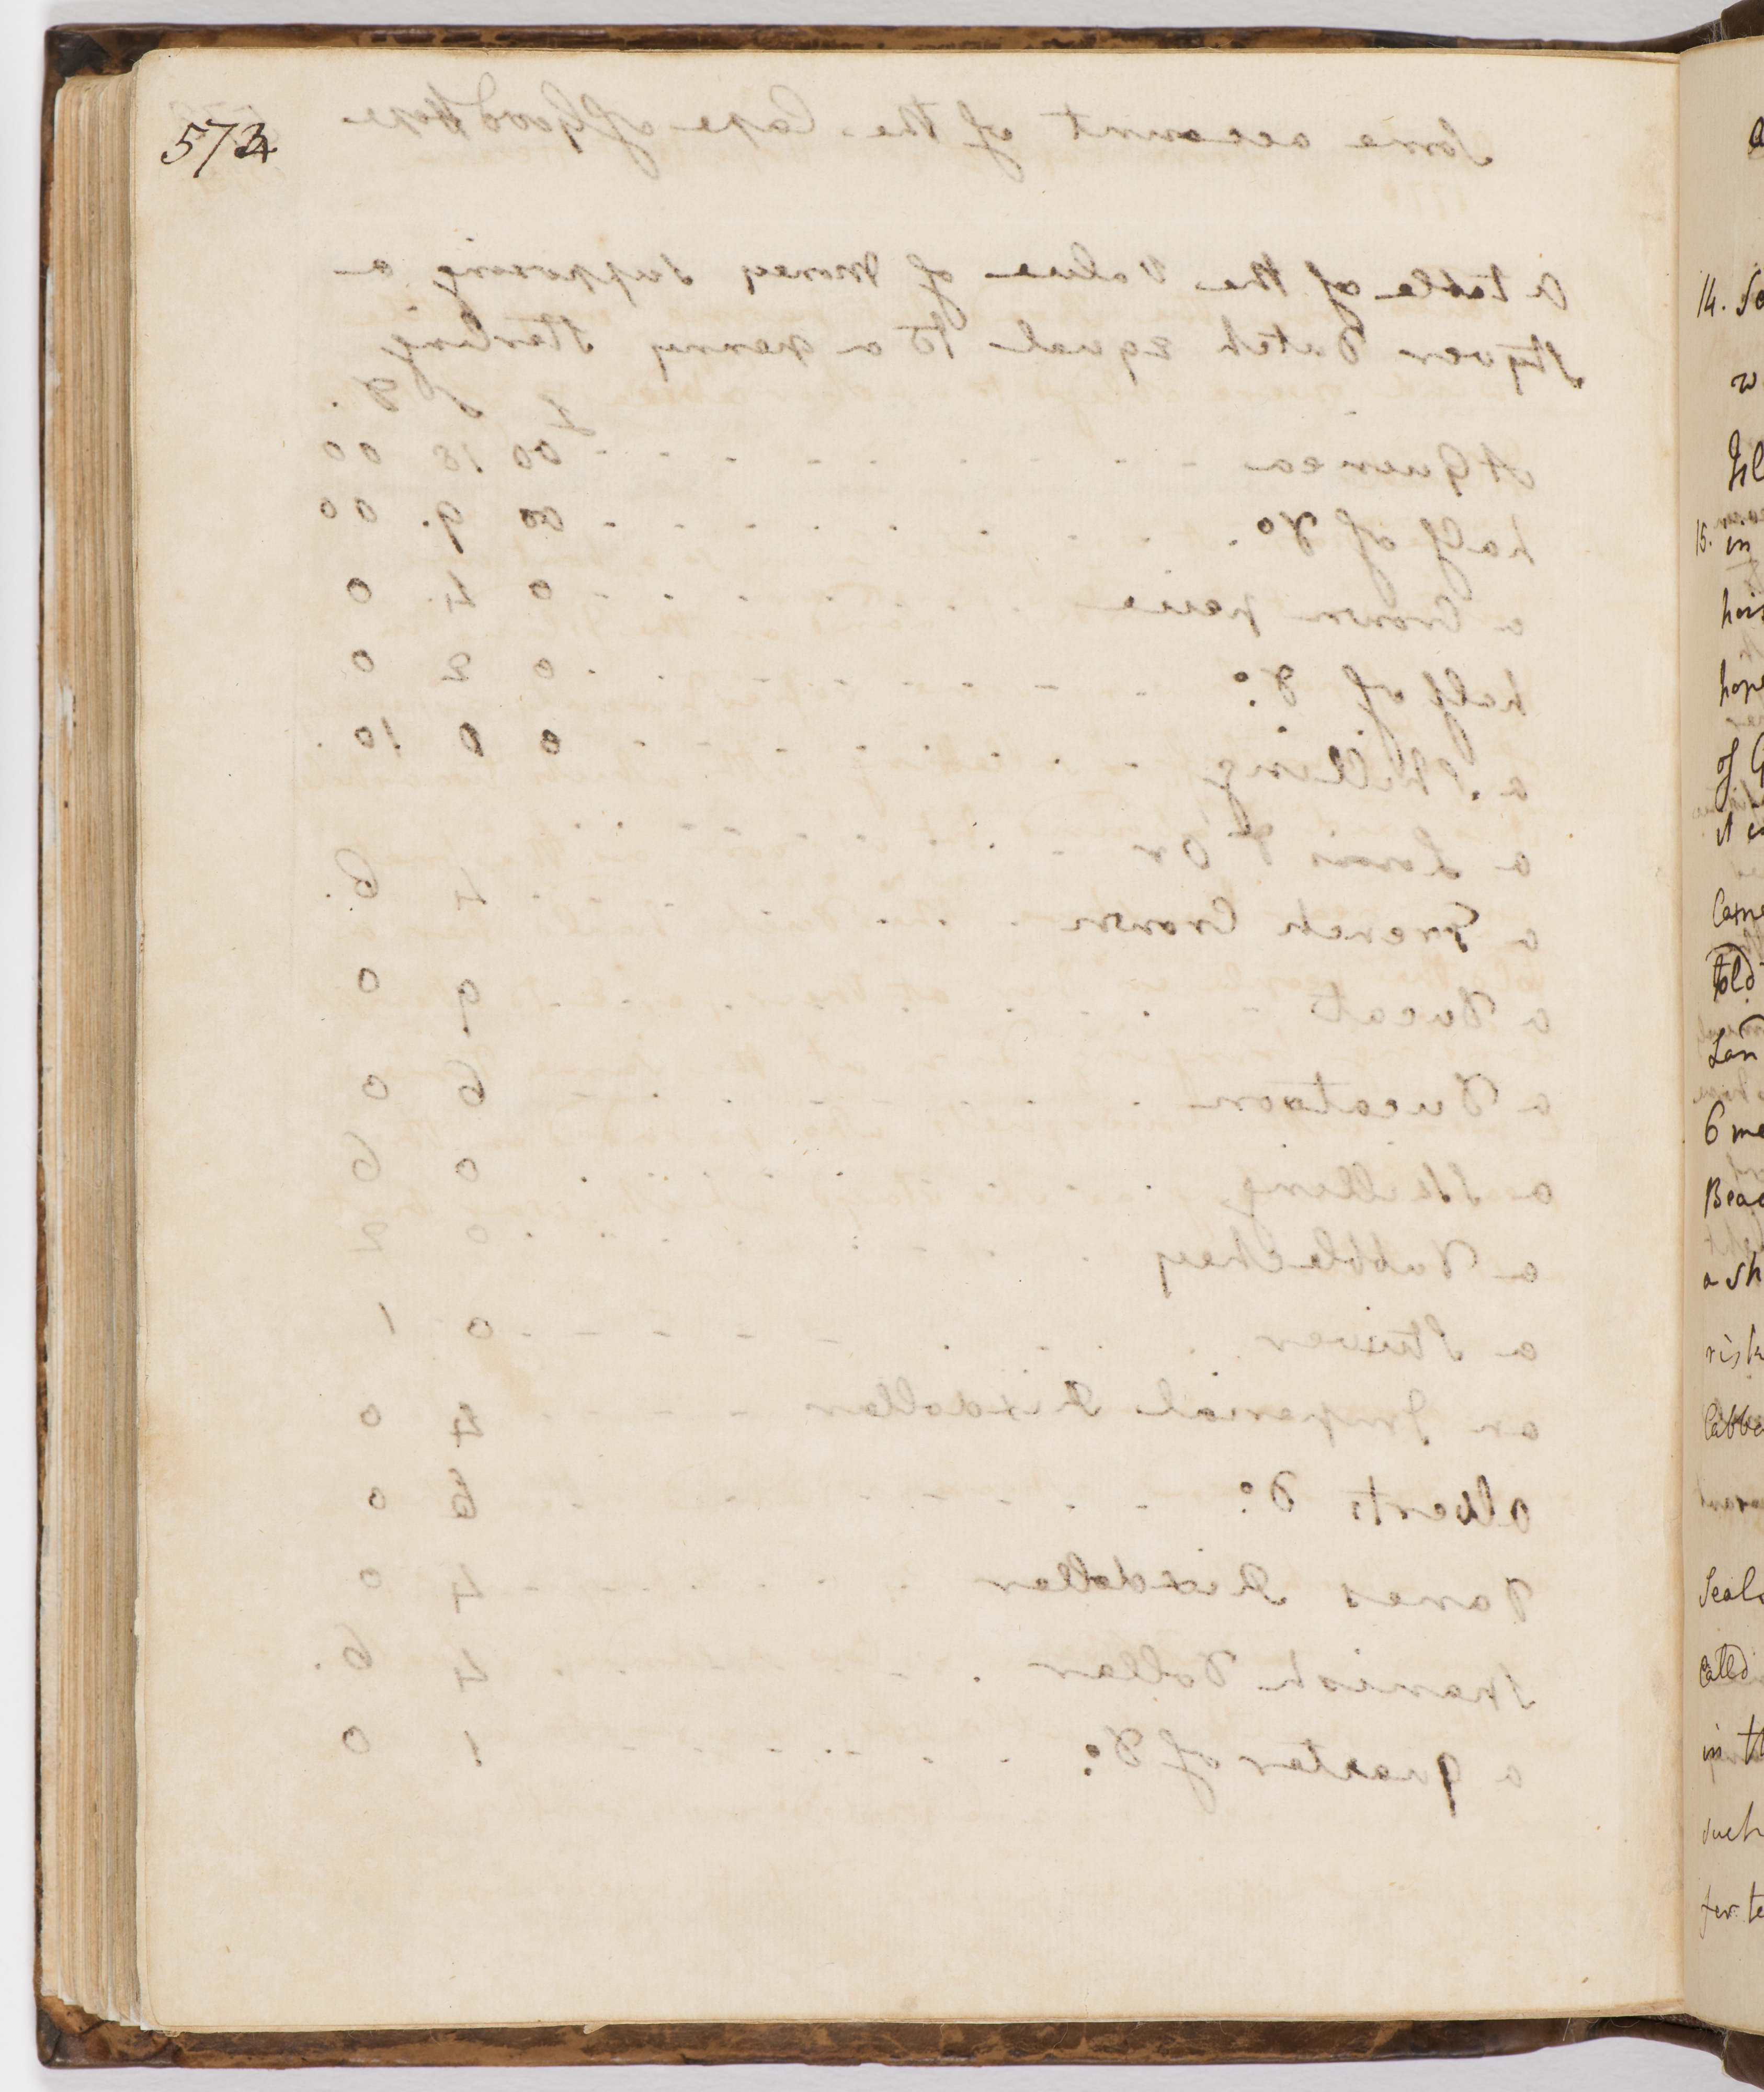 573
Some account of the Cape of Good Hope
A table of the Value of Money supposing a
Styver Dutch equal to a penny Sterling
£ S D.
A Guinea - - - - - - - - 00 18 00
half of Do. - - - - - - - 00 9. 00
a Crown peice - - - - - - 0 4. 0
half of Do: - - - - - - - 0 2 0
a Shilling - - - - - - - 0 0 10.
a Louis d Or - - - - - - -
a French Crown - - - - - 4 6.
a Ducat - - - - - - - 9 0
a Ducatoon - - - - - - 6 0
a Skilling - - - - - - 0 6
a Dubblechey - - - - - 0 2
a Stuiver - - - - - - - 0 1
an Imperial Rixdollar - - - - 4 0
Alberts Do: - - - - - - - 0
Danes Rixdollar - - - - - 4 0
Spanish Dollar - - - - - 4 6.
a quarter of Do: - - - - - 1 0
14. So
w
Isl
15. in
hois
hope
of G
it
Cape
told
Lan
6 me
Beac
a sh
risk
Cabba
Seals
Called
in th
such
for te